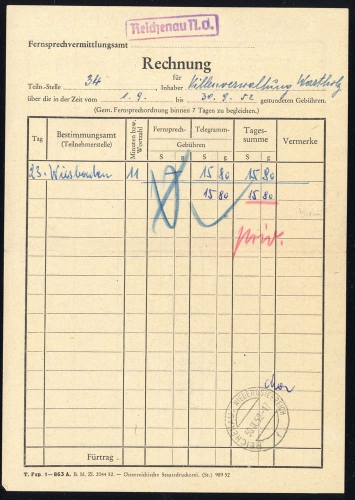 Reichenau N.Ö.
Fernsprechvermittlungsamt
Rechnung
für
Teiln.-Stelle 34, Inhaber Villenverwaltung Wartholz
über die in der Zeit vom 1. 9. bis 30. 9. 52 gestundeten Gebühren.
(Gem. Fernsprechordnung binnen 7 Tagen zu begleichen.)
Tag Bestimmungsamt (Teilnehmerstelle) Minuten bzw. Wortzahl Fernsprech- Telegramm- Gebühren Tages- summe Vermerke
S g S g S g
23. Wiesbaden 11 15 80 15 80
15 80 15 80
priv.
REICHENAU NIEDERÖSTERREICH
Fürtrag
T. Fsp. 1—863 A. B. M. Zl. 2044 52. — Österreichische Staatsdruckerei. (St.) 989 52